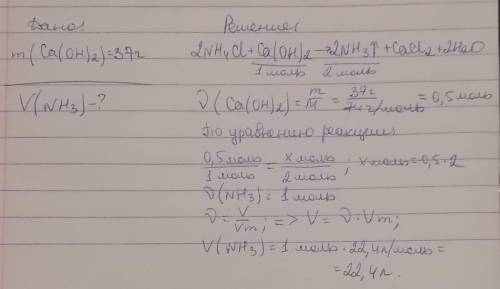 Дано:
Решение
m(Ca(OH)₂)=37г
2NH₄Cl+Ca(OH)₂→2NH₃↑+CaCl₂+2H₂O
1 моль 2 моль
V(NH₃)-?
ν(Ca(OH)₂)=m/M=37г/74г/моль=0,5моль
По уравнению реакции
0,5моль/1 моль=x моль/2 моль; x моль=0,5·2
ν(NH₃)=1 моль
ν=V/Vm; => V=ν·Vm;
V(NH₃)=1 моль·22,4л/моль=
=22,4л.